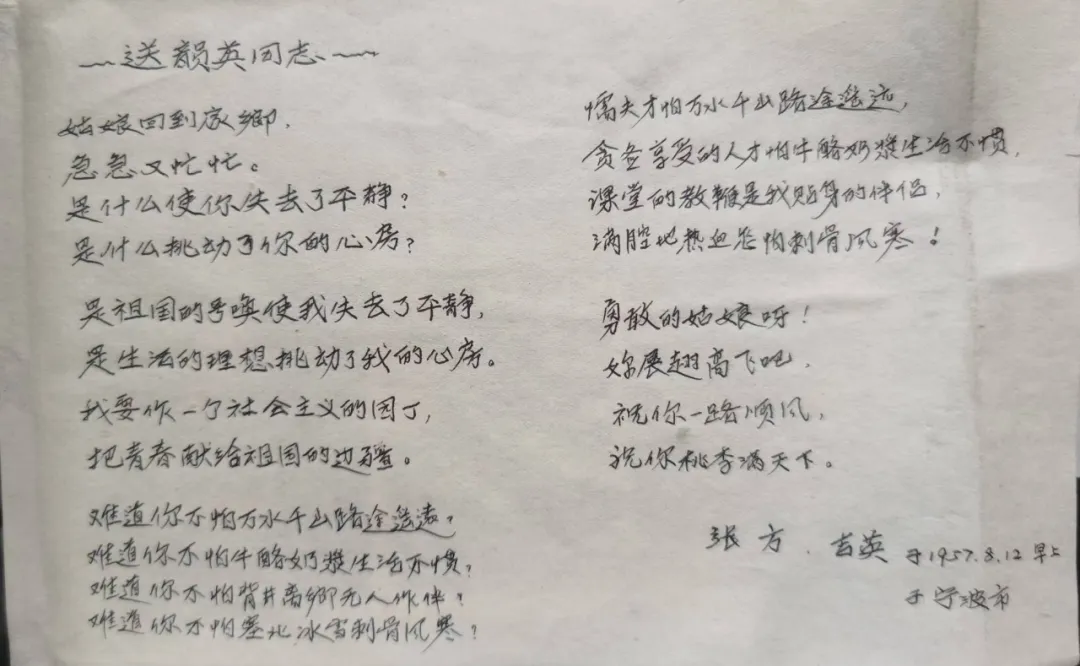 送韻英同志
姑娘回到家鄉,
急急又忙忙。
是什么使你失去了平静?
是什么挑动了你的心房?
是祖国的号唤使我失去了平静,
是生活的理想挑动了我的心房。
我要作一个社会主义的园丁,
把青春献给祖国的边疆。
难道你不怕万水千山路途遥远?
难道你不怕牛酪奶浆生活不惯?
难道你不怕背井离乡无人作伴?
难道你不怕塞北冰雪刺骨风寒?
懦夫才怕万水千山路途遥远,
贪图享受的人才怕牛酪奶浆生活不惯,
课堂的教鞭是我贴身的伴侣,
满腔地热血怎怕刺骨风寒!
勇敢的姑娘呀!
你展翅高飞吧,
祝你一路顺风,
祝你桃李满天下。
张方、吉英 于1957.8.12早上
于宁波市